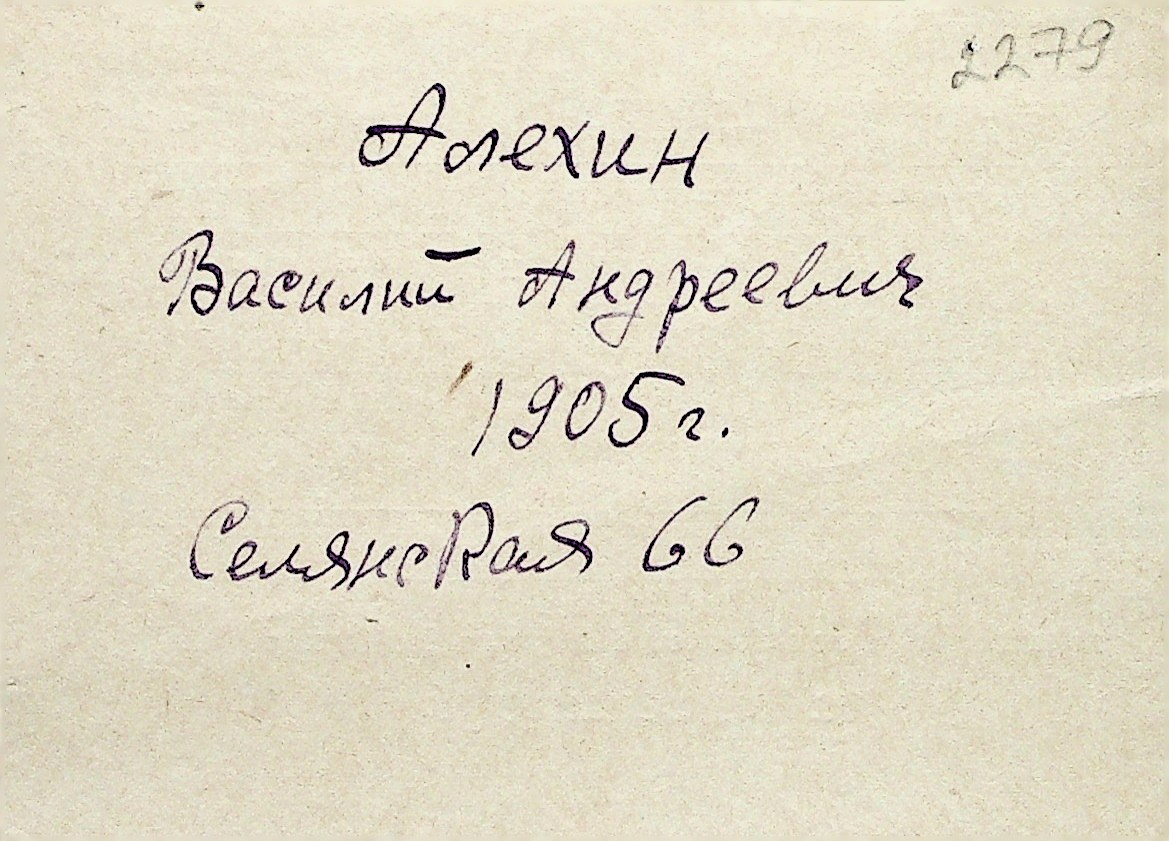 2279
Алехин
Василий Андреевич
1905 г.
Селянская 66